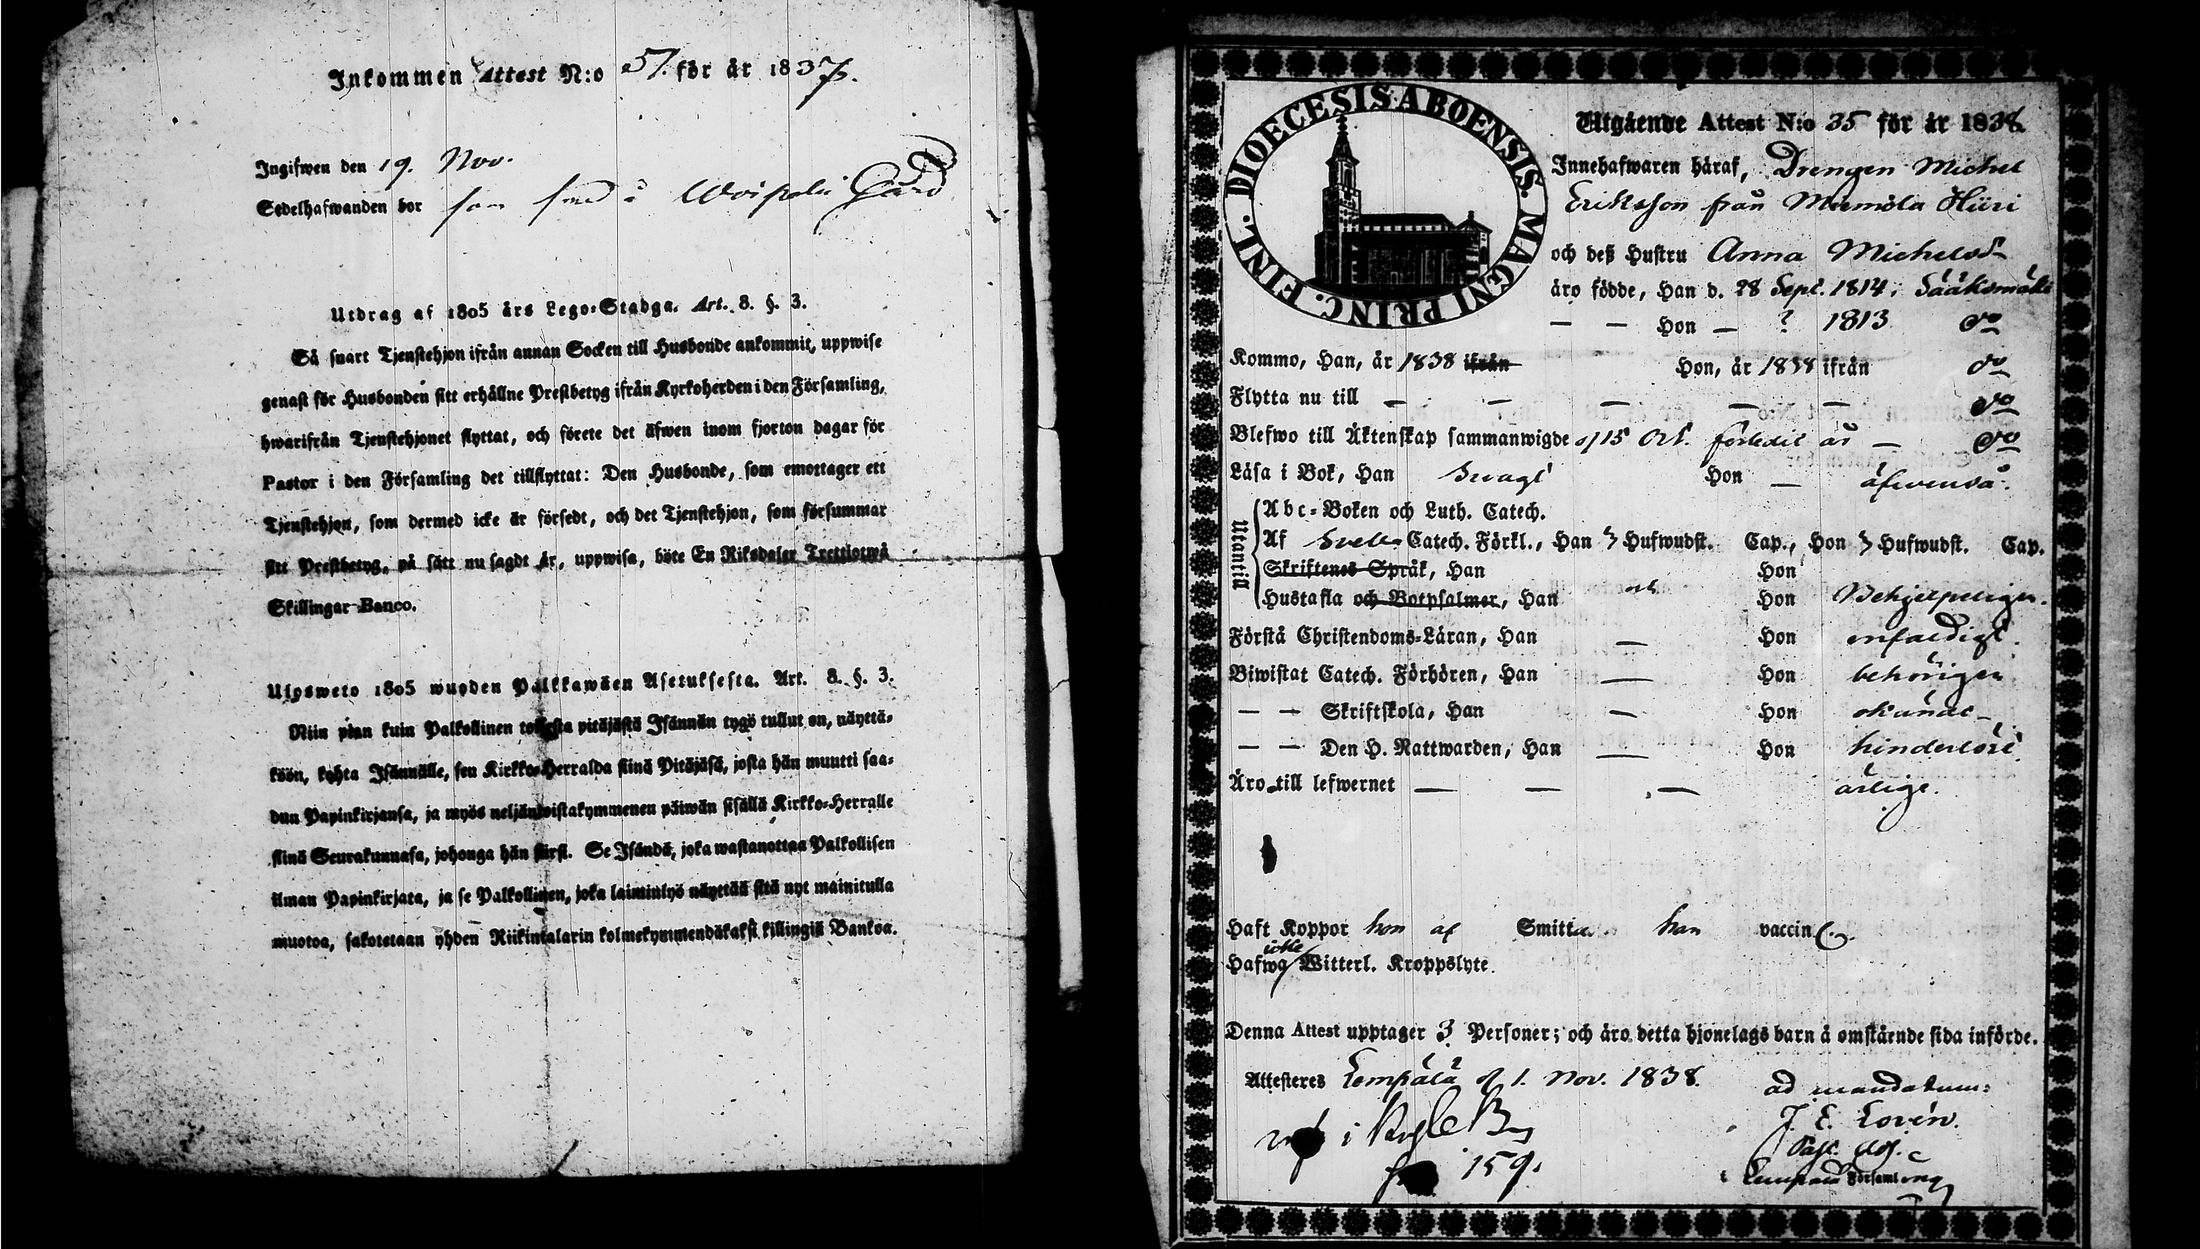 Inkommen Attest N:o 57. för år 1838.
Ingifwen den 19. Nov.
Sedelhafwanden bor som smed å Woipala Gård
Utdrag af 1805 års Lego-Stadga. Art. 8. §. 3.
Så snart Tjenstehjon ifrån annan Socken till Husbonde ankommit, uppwise
genast för Husbonden sitt erhållne Prestbetyg ifrån Kyrkoherden i den Församling,
hwarifrån Tjenstehjonet flyttat, och förete det äfwen inom fjorton dagar för
Pastor i den Församling det tillflyttat: Den Husbonde, som emottager ett
Tjenstehjon, som dermed icke är försedt, och det Tjenstehjon, som försummar
sitt Prestbetyg, på sätt nu sagdt är, uppwisa, böte En Riksdaler Trettiotwå
Skillingar Banco.
Ulosweto 1805 wuoden Palkkawäen Asetuksesta. Art. 8. §. 3.
Niin pian kuin Palkollinen toisesta pitäjästä Isännän tygö tullut on, näyttä-
köön, kohta Isännälle, sen Kirkko-Herralda siinä Pitäjäsä, josta hän muutti saa-
dun Papinkirjansa, ja myös neljäntoistakymmenen päiwän sisällä Kirkko-Herralle
siinä Seurakunnasa, johonga hän siirsi. Se Isändä, joka wastanottaa Palkollisen
ilman Papinkirjata, ja se Palkollinen, joka laiminlyö näyttää sitä nyt mainitulla
muotoa, sakotetaan yhden Riikintalarin kolmekymmendäkaksi killingiä Bankoa.
DIOECESIS ABOENSIS. MAGNI PRINC. FINL.
Utgående Attest N:o 35 för år 1838.
Innehafwaren häraf, Drengen Michel
Eriksson från Mäemola Hiiri
och deß Hustru Anna Michelsd
äro födde, Han d. 28 Sept. 1814, i Sääksmäki
— — Hon — ? 1813 do
Kommo, Han, år 1838 ifrån Hon, år 1838 ifrån do
Flytta nu till — — — — — do
Blefwo till Äktenskap sammanwigde d 15 Oct. förledit år — do
Läsa i Bok, Han Swagt Hon — äfwenså.
Utantill
Abc-Boken och Luth. Catech.
Af Sveb. Catech. Förkl., Han 3 Hufwudst. Cap., Hon 3 Hufwudst. Cap.
Skriftenes Språk, Han Hon
Hustafla och Botpsalmer, Han och Hon Behjelpeligen.
Förstå Christendoms-Läran, Han — Hon enfaldigt.
Biwistat Catech. Förhören, Han — Hon behörigen
— — Skriftskola, Han — Hon okände —
— — Den H. Nattwarden, Han — Hon hinderlöse.
Äro till lefwernet — — — ärlige.
Haft Koppor hon af Smitta. han vaccin.
icke
Hafwa Witterl. Kroppslyte.
Denna Attest upptager 3 Personer; och äro detta hjonelags barn å omstående sida införde.
Attesteres Lempälä d 1. Nov. 1838. ad mandatum:
J. E. Lovén.
i Kyrk. B
Past. Adj.
159.
Lempälä Församling